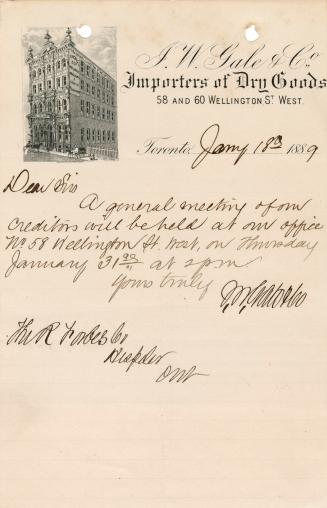 J. W. Gale & Co
Importers of Dry Goods
58 AND 60 WELLINGTON ST. WEST.
Toronto Jany 18th 1889
Dear Sir
A general meeting of our
creditors will be held at our office
No 58 Wellington St. West, on Thursday
January 31st at 2 pm
Yours truly
J W Gale & Co
The R Forbes Co
Hespeler
Ont